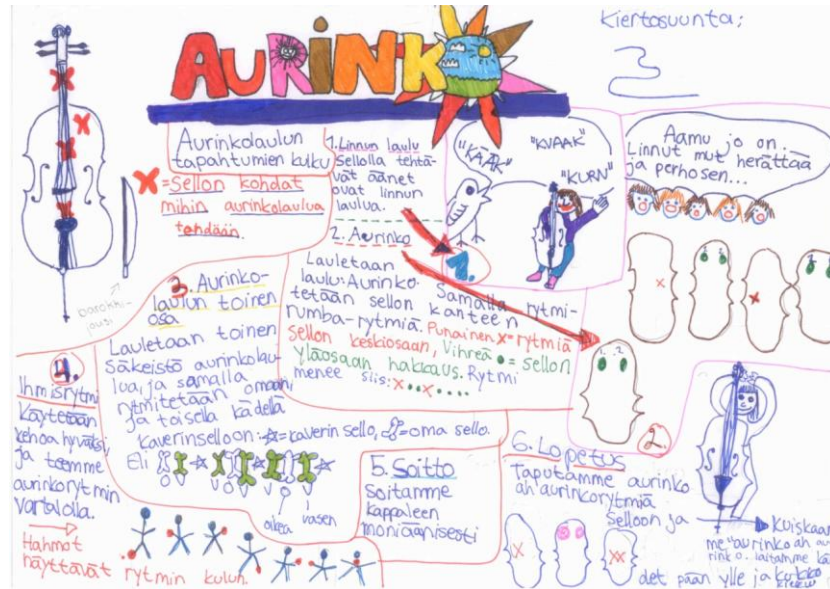 AURINKO
Kiertosuunta:
Aurinkolaulun
tapahtumien kulku
X=Sellon kohdat
mihin aurinkolaulua
tehdään.
barokki-
jousi
1. Linnun laulu
Sellolla tehtä-
vät äänet
ovat linnun
laulua.
"KÄÄK"
"KVAAK"
"KURN"
Aamu jo on..
Linnut mut herättää
ja perhosen...
1.
2. Aurinko
Lauletaan
laulu: Aurinko. Samalla rytmi-
tetään sellon kanteen
rumba-rytmiä. Punainen X=rytmiä
sellon keskiosaan, Vihreä ●=sellon
yläosaan hakkaus. Rytmi
menee siis: X..X....
1 2
2.
3. Aurinko-
laulun toinen
osa
Lauletaan toinen
säkeistö aurinkolau-
lua, ja samalla
rytmitetään omaan,
ja toisella kädellä
kaverinselloon: =kaverin sello, =oma sello.
Eli
V O V O V O V
oikea
vasen
4.
Ihmisrytmi
Käytetään
kehoa hyväksi,
ja teemme
aurinkorytmin
vartalolla.
Hahmot
näyttävät rytmin kulun.
5. Soitto
Soitamme
kappaleen
moniäänisesti
6. Lopetus
Taputamme aurinko
ah aurinkorytmiä
Selloon ja
Kuiskaam
me "aurinko ah au
rinko. laitamme kä
det pään ylle ja kukko